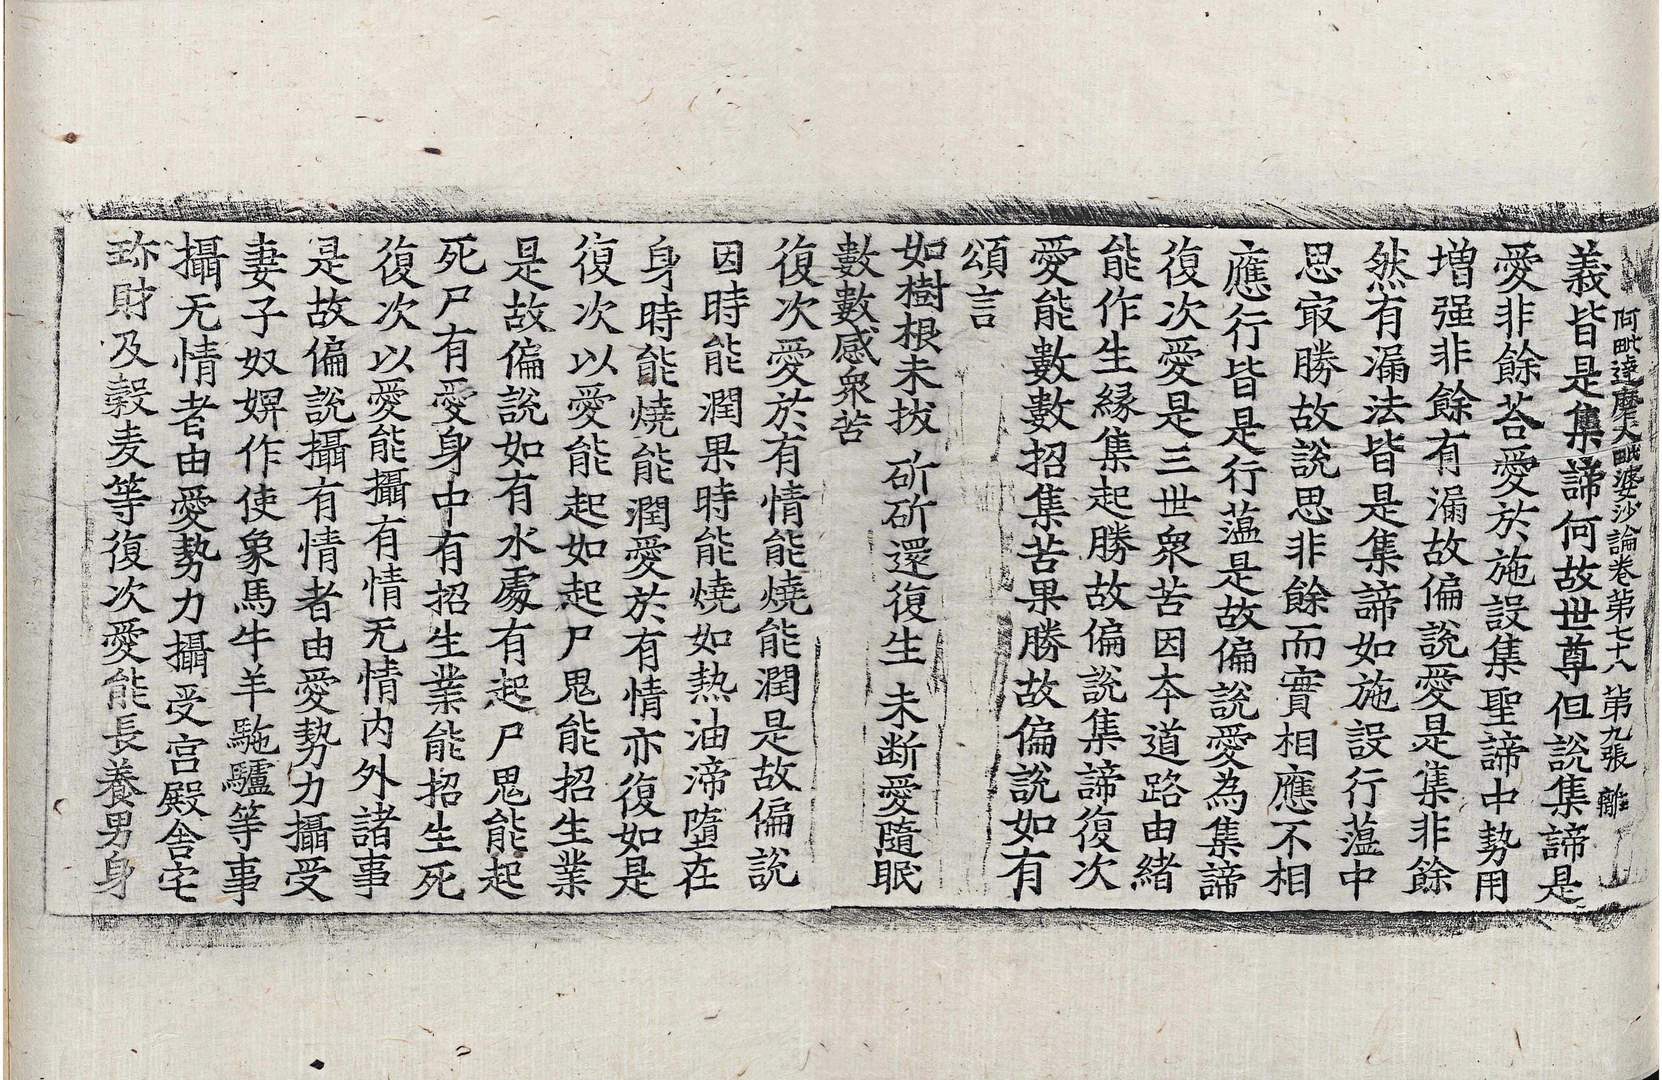 阿毗達磨大毗婆沙論卷苐七十八 苐九張 離
義皆是集諦何故世尊但說集諦是
愛非餘荅愛於施設集聖諦中勢用
增强非餘有漏故偏說愛是集非餘
然有漏法皆是集諦如施設行薀中
思㝡勝故說思非餘而實相應不相
應行皆是行薀是故偏說愛為集諦
復次愛是三世衆苦因夲道路由緒
能作生縁集起勝故偏說集諦復次
愛能數數招集苦果勝故偏說如有
頌言
如樹根未拔 斫斫還復生 未断愛隨眠
數數感衆苦
復次愛於有情能燒能潤是故偏說
因時能潤果時能燒如熱油渧墮在
身時能燒能潤愛於有情亦復如是
復次以愛能起如起尸鬼能招生業
是故偏說如有水處有起尸鬼能起
死尸有愛身中有招生業能招生死
復次以愛能攝有情无情内外諸事
是故偏說攝有情者由愛勢力攝受
妻子奴婢作使象馬牛羊駞驢等事
攝无情者由愛勢力攝受宮殿舍宅
珎財及穀麦等復次愛能長養男身